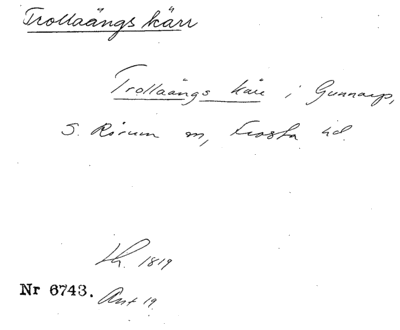 Trollaängs kärr
Trollaängs kärr i Gunnarp,
S. Rörum sn, Frosta hd.
Lh. 1819
Nr 6743. Ant 19